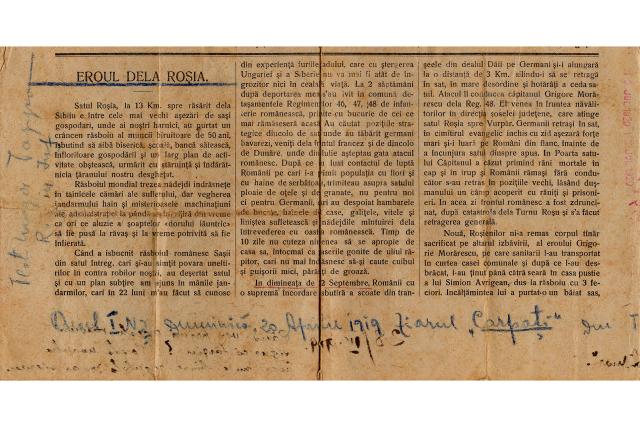 EROUL DELA ROȘIA.
Satul Roșia, la 13 Km. spre răsărit dela
Sibiu e între cele mai vechi așezări de sași
gospodari, unde ai noștri harnici, au gurtat un
crâncen răsboiu al muncii biruitoare de 50 ani,
isbutind să aibă biserică, școală, bancă sătească,
înfloritoare gospodării și un larg plan de acti-
vitate obștească, urmărit cu stăruință și îndărăt-
nicia țăranului nostru desghețat.
Răsboiul mondial trezea nădejdi îndrăsnețe
în tainicele cămări ale sufletului, dar vegherea
jandarmului hain și misterioasele mașinațiuni
ale administrației la pândă
ori ce aluzie a șoaptelor „dorului lăuntric»
să fie pusă la răvaș și la vreme potrivită să fie
înfierată.
Când a isbucnit răsboiul românesc Sașii
din satul întreg, cari și-au simțit povara unelti-
rilor în contra robilor noștri, au deșertat satul
și cu un plan subțire am ajuns în mânile jan-
darmilor, cari în 22 luni m'au făcut să cunosc
din experiența furiile iadului, care cu ștergerea
Ungariei și a Siberie nu va mai fi atât de în-
grozitor nici în cealaltă viață. La 2 săptămâni
după deportarea mea s'au ivit în comună de-
tașamentele Regimentelor 46, 47, 48 de infante-
rie românească, primite cu bucurie de cei ce
mai rămăseseră acasă Au căutat pozițiile strate-
gice dincolo de sat unde au tăbărît germani
bavarezi, veniți dela frontul francez și de dincolo
de Dunăre, unde din iulie așteptau gata atacul
românesc. După ce au luat contact de luptă
Românii pe cari i-a primit populația cu flori și
cu haine de serbători, trimiteau asupra satului
ploaie de obuze și granate, nu pentru noi
ci pentru Germanii, cari au despoiat hambarele
de bucate, hainele de case, galițele, vitele și
liniștea sufletească și nădejdile mîntuirei dela
întrevederea cu oastea românească. Timp de
10 zile nu cuteza nimenea să se apropie de
casa sa, întocmai ca niște gonite de uliul ră-
pitor, cari nu mai îndăsnesc să-și caute cuibul
și puișorii mici, părăsiți de groază.
În dimineața de 12 Septembre, Românii cu
o supremă încordare isbutiră a scoate din tran-
șeele din dealul Dăii pe Germani și-i alungară
la o distanță de 3 Km. silindu-i să se retragă
în sat, în mare desordine și hotărâți a ceda sa-
tul. Atunci îi conducea căpitanul Grigore Mo-
rărescu dela Reg. 48. El venea în fruntea năvăli-
torilor în direcția șoselei județene, care atinge
satul Roșia spre Vurpăr. Germanii retrași în sat,
în cimitirul evangelic închis cu zid așezară forțe
mari și-i luară pe Români din flanc, înainte de
a încunjura satul dinspre apus. În Poarta satu-
lui Căpitanul a căzut primind răni mortale în
cap și în trup și Românii rămași fără condu-
cător s-au retras în pozițiile vechi, lăsând duș-
manului un câmp acoperit cu răniți și prisoni-
eri. În acea zi frontul românesc a fost zdrunci-
nat, după catastrofa dela Turnu Roșu și s'a făcut
retragerea generală.
Nouă, Roșienilor ni-a remas corpul tînăr
sacrificat pe altarul izbăvirii, al eroului Grigo-
rie Morărescu, pe care sanitarii l-au transportat
în curtea casei comunale și după ce l-au des-
brăcat, l-au ținut până cătră seară în casa pustie
lui Simion Avrigean, dus la răsboiu cu 3 fe-
ciori. Încălțămintea lui a purtat-o un băiat sas,
Anul I. Nr. duminică, 20 Aprilie 1919 Ziarul „Carpați" din